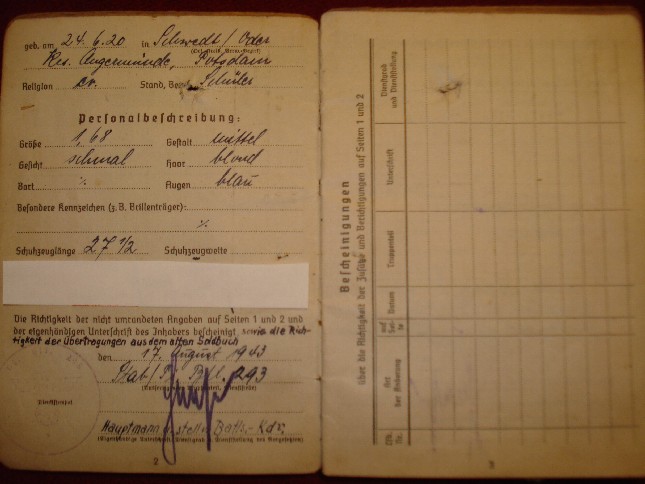 geb. am 24.6.20 in Schwedt/Oder
Krs. Angermünde, Potsdam
Religion ev. Stand, Beruf Schüler
Personalbeschreibung:
Größe 1,68 Gestalt mittel
Gesicht schmal Haar blond
Bart ./. Augen blau
Besondere Kennzeichen (z. B. Brillenträger):
./.
Schuhzeuglänge 27 1/2 Schuhzeugweite
Die Richtigkeit der nicht umrandeten Angaben auf Seiten 1 und 2 und
der eigenhändigen Unterschrift des Inhabers bescheinigt sowie die Rich-
tigkeit der Übertragungen aus dem alten Soldbuch
den 17. August 1943
Stab/ 293
Dienststempel
Hauptmann Batls.-Kdr.
(Eigenhändige Unterschrift, Dienstgrad u. Dienststellung des Vorgesetzten)
2
Bescheinigungen
über die Richtigkeit der Zusätze und Berichtigungen auf Seiten 1 und 2
Lfd. Nr.
Art der Änderung
auf Sei-te
Datum
Truppenteil
Unterschrift
Dienstgrad und Dienststellung
3